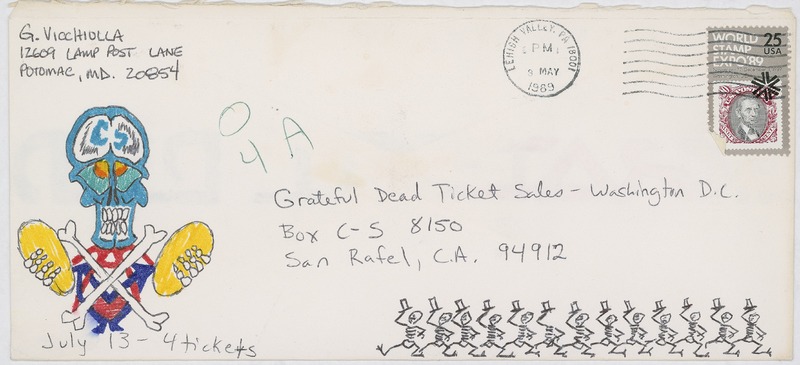 G. Viochiolla
12609 LAMP POST LANE
POTOMAC, MD. 20854
LEHIGH VALLEY, PA 18001
PM
9 MAY
1989
WORLD
STAMP
EXPO'89
25
USA
CS
O
4 A
Grateful Dead Ticket Sales - Washington D.C.
Box C-S 8150
San Rafel, C.A. 94912
July 13 - 4 tickets